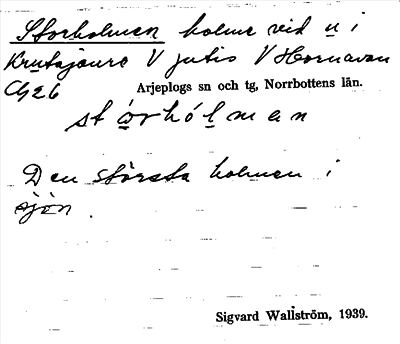 Storholmen holme vid u i
Krutsjaure V Jutis V Hornavan
Arjeplogs sn och tg, Norrbottens län.
stórhólmen
Den största holmen i
sjön.
Sigvard Wallström, 1939.